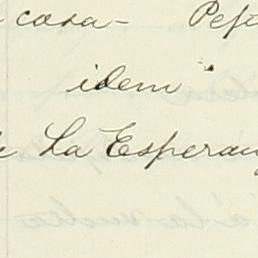 casa - Pep
idem "
La Esperan